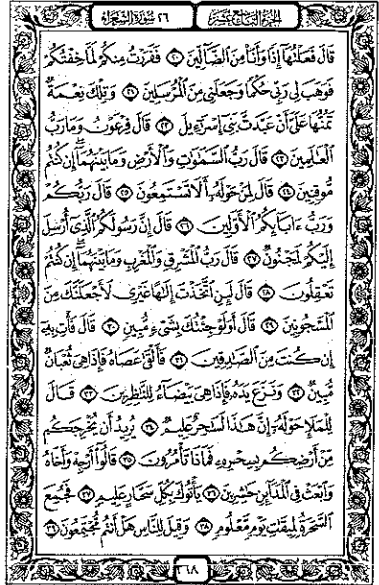 الجزء التاسع عشر
٢٦ سورة الشعراء
قَالَ فَعَلْتُهَآ إِذًا وَأَنَا۠ مِنَ ٱلضَّآلِّينَ ٢٠ فَفَرَرْتُ مِنكُمْ لَمَّا خِفْتُكُمْ
فَوَهَبَ لِى رَبِّى حُكْمًا وَجَعَلَنِى مِنَ ٱلْمُرْسَلِينَ ٢١ وَتِلْكَ نِعْمَةٌ
تَمُنُّهَا عَلَىَّ أَنْ عَبَّدتَّ بَنِىٓ إِسْرَٰٓءِيلَ ٢٢ قَالَ فِرْعَوْنُ وَمَا رَبُّ
ٱلْعَٰلَمِينَ ٢٣ قَالَ رَبُّ ٱلسَّمَٰوَٰتِ وَٱلْأَرْضِ وَمَا بَيْنَهُمَآ إِن كُنتُم
مُّوقِنِينَ ٢٤ قَالَ لِمَنْ حَوْلَهُۥٓ أَلَا تَسْتَمِعُونَ ٢٥ قَالَ رَبُّكُمْ
وَرَبُّ ءَابَآئِكُمُ ٱلْأَوَّلِينَ ٢٦ قَالَ إِنَّ رَسُولَكُمُ ٱلَّذِىٓ أُرْسِلَ
إِلَيْكُمْ لَمَجْنُونٌ ٢٧ قَالَ رَبُّ ٱلْمَشْرِقِ وَٱلْمَغْرِبِ وَمَا بَيْنَهُمَآ إِن كُنتُمْ
تَعْقِلُونَ ٢٨ قَالَ لَئِنِ ٱتَّخَذْتَ إِلَٰهًا غَيْرِى لَأَجْعَلَنَّكَ مِنَ
ٱلْمَسْجُونِينَ ٢٩ قَالَ أَوَلَوْ جِئْتُكَ بِشَىْءٍ مُّبِينٍ ٣٠ قَالَ فَأْتِ بِهِۦٓ
إِن كُنتَ مِنَ ٱلصَّٰدِقِينَ ٣١ فَأَلْقَىٰ عَصَاهُ فَإِذَا هِىَ ثُعْبَانٌ
مُّبِينٌ ٣٢ وَنَزَعَ يَدَهُۥ فَإِذَا هِىَ بَيْضَآءُ لِلنَّٰظِرِينَ ٣٣ قَالَ
لِلْمَلَإِ حَوْلَهُۥٓ إِنَّ هَٰذَا لَسَٰحِرٌ عَلِيمٌ ٣٤ يُرِيدُ أَن يُخْرِجَكُم
مِّنْ أَرْضِكُم بِسِحْرِهِۦ فَمَاذَا تَأْمُرُونَ ٣٥ قَالُوٓا۟ أَرْجِهْ وَأَخَاهُ
وَٱبْعَثْ فِى ٱلْمَدَآئِنِ حَٰشِرِينَ ٣٦ يَأْتُوكَ بِكُلِّ سَحَّارٍ عَلِيمٍ ٣٧ فَجُمِعَ
ٱلسَّحَرَةُ لِمِيقَٰتِ يَوْمٍ مَّعْلُومٍ ٣٨ وَقِيلَ لِلنَّاسِ هَلْ أَنتُم مُّجْتَمِعُونَ ٣٩
٣٦٨